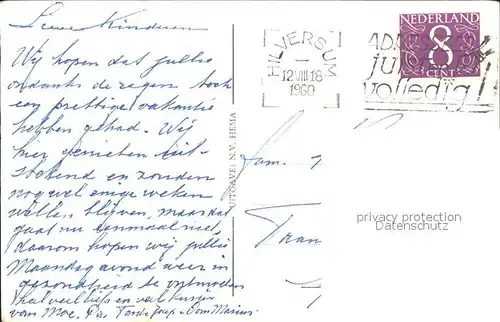 Lieve Kinderen
Wij hopen dat jullie
ondanks de regen toch
een prettige vakantie
hebben gehad. Wij
hier genieten uit-
stekend en zouden
nog wel enige weken
willen blijven, maar dat
gaat nu eenmaal niet,
daarom hopen wij jullie
Maandag avond weer in
gezondheid te ontmoeten
Veel liefs en veel kusjes
van Moe, Pa, Tante Jaap Oom Marius
UITGAVE: N.V. HEMA
HILVERSUM
12 VIII 18
1960
volledig!
NEDERLAND
8
CENT
Fam.
privacy protection
Datenschutz